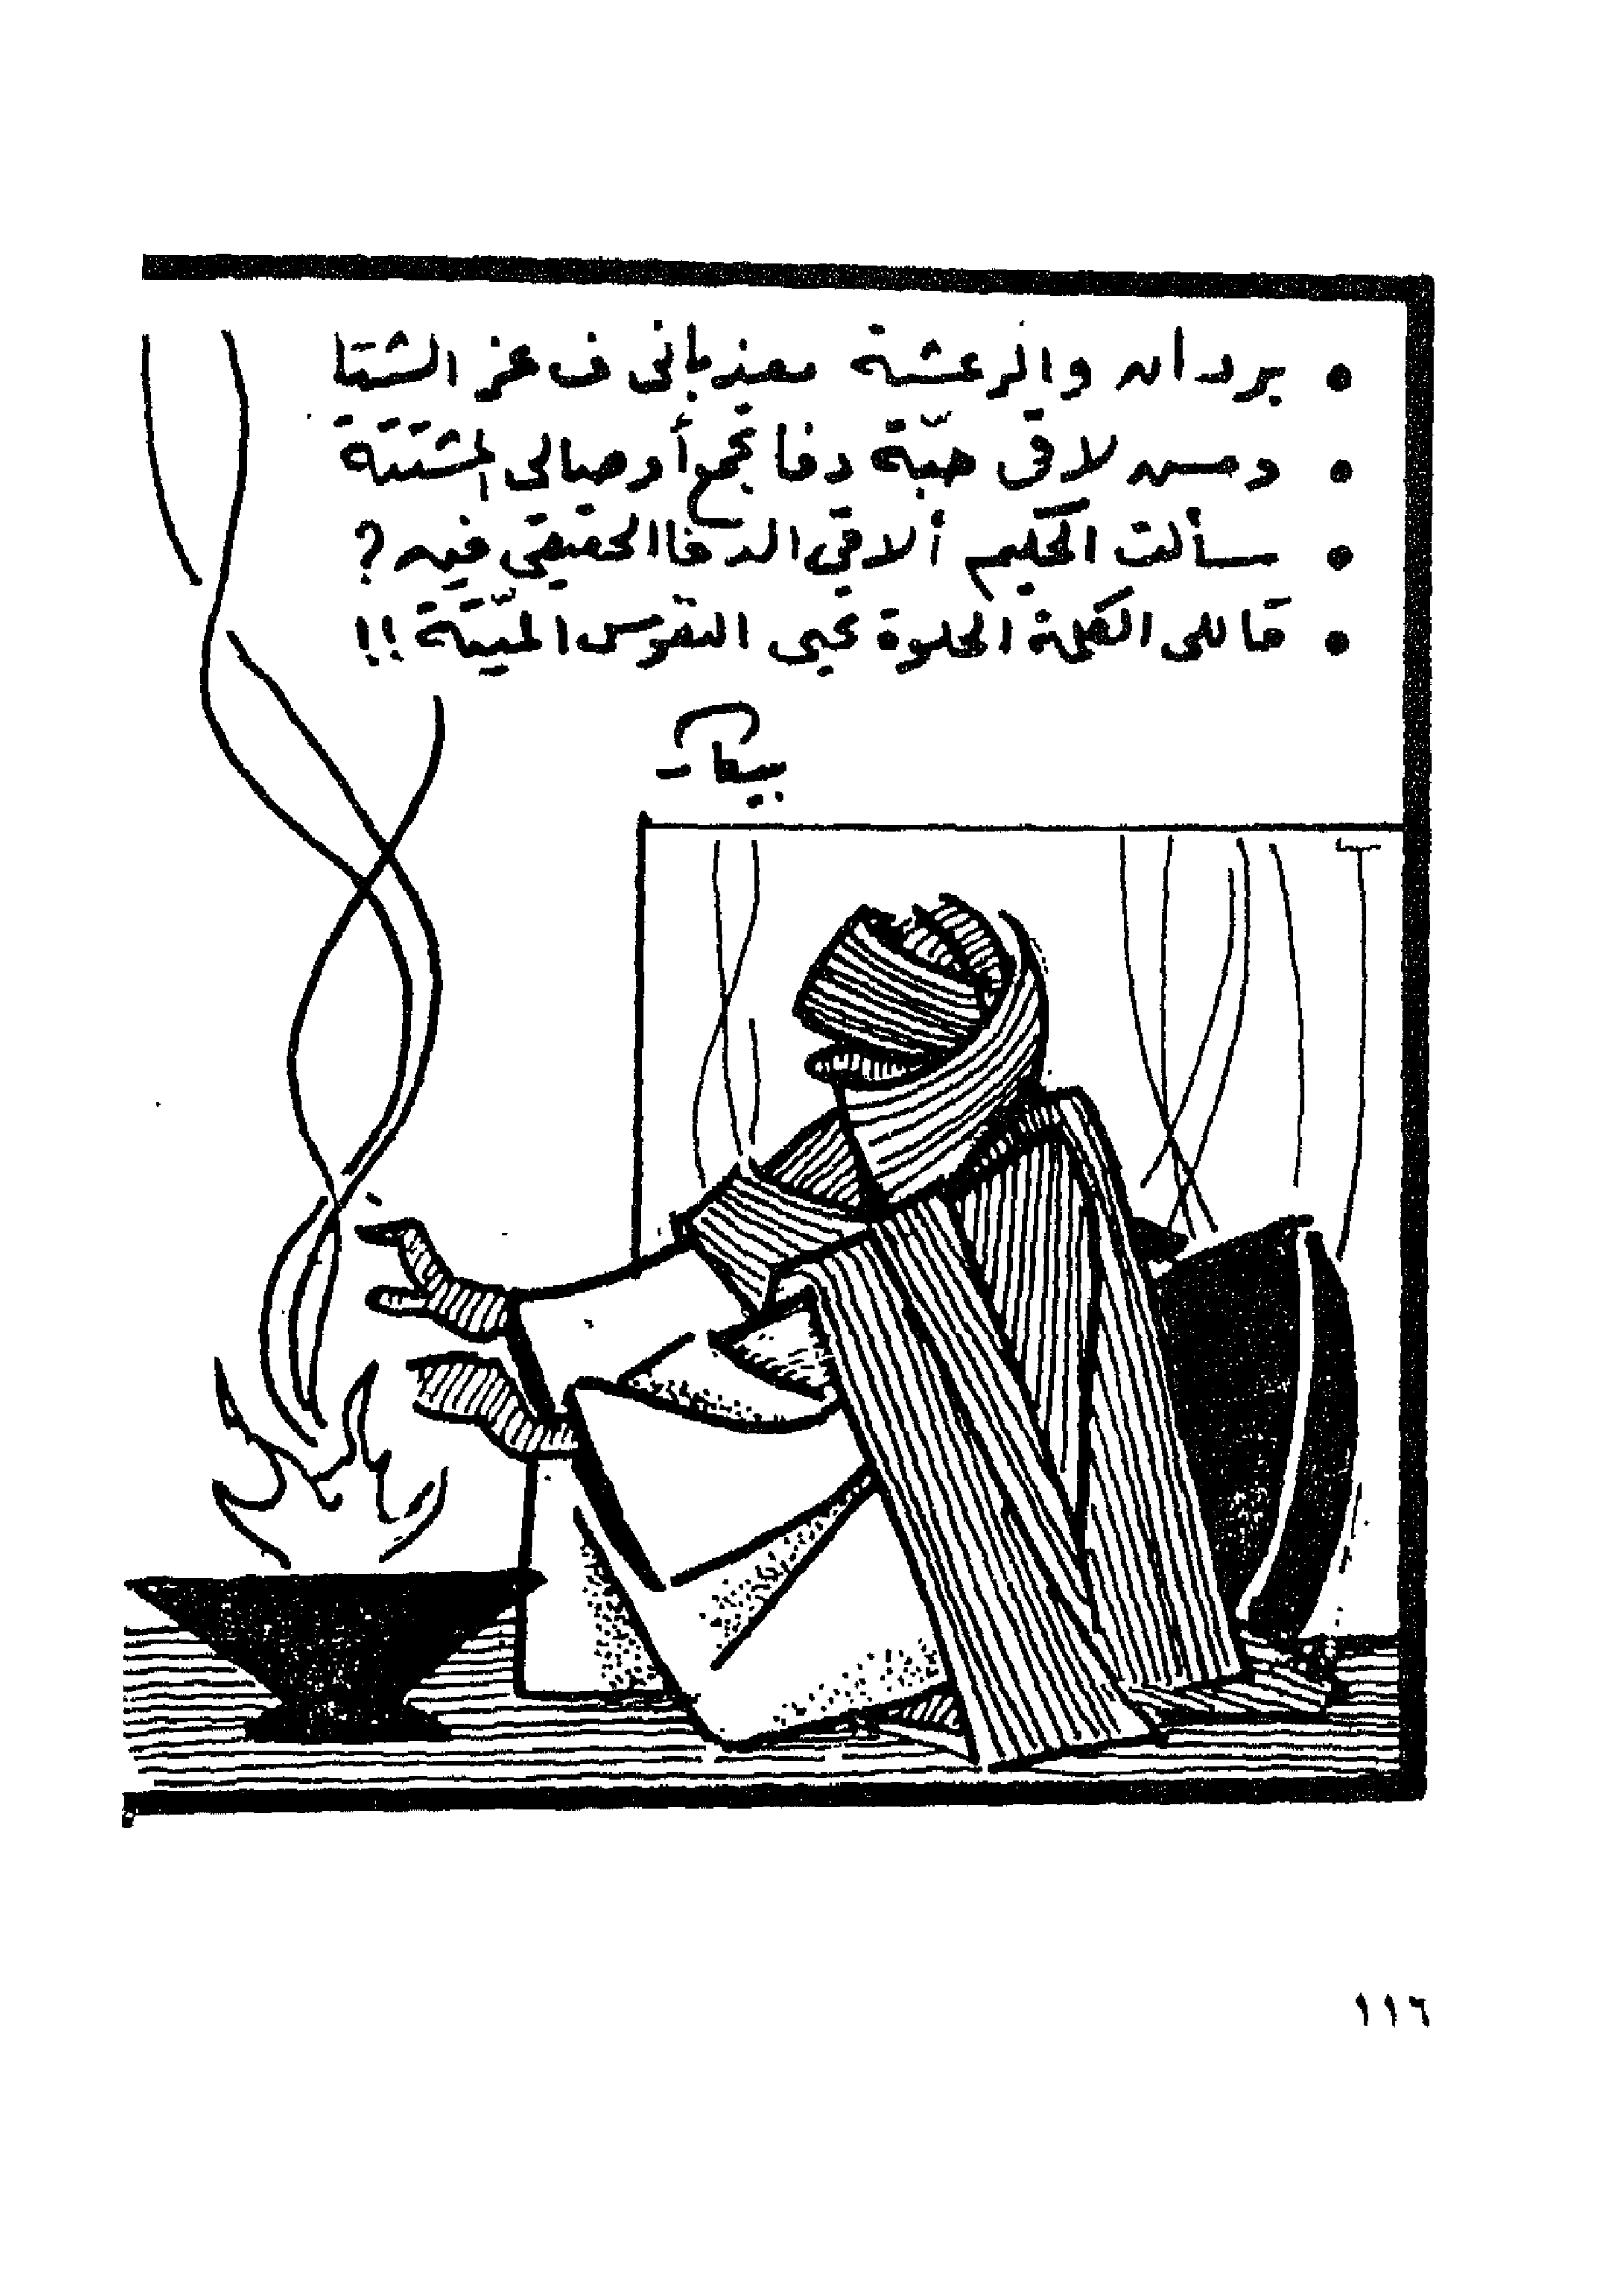 • بردان والرعشة معذباني ف عز الشتا
• ومس لاقي حبّة دفا تجمع أوصالي المشتتة
• سألت الحكيم ألاقي الدفا الحقيقي فيه ؟
• قاللي الكلمة الحلوة تحيي النفوس الميّتة !!
بيكار
١١٦